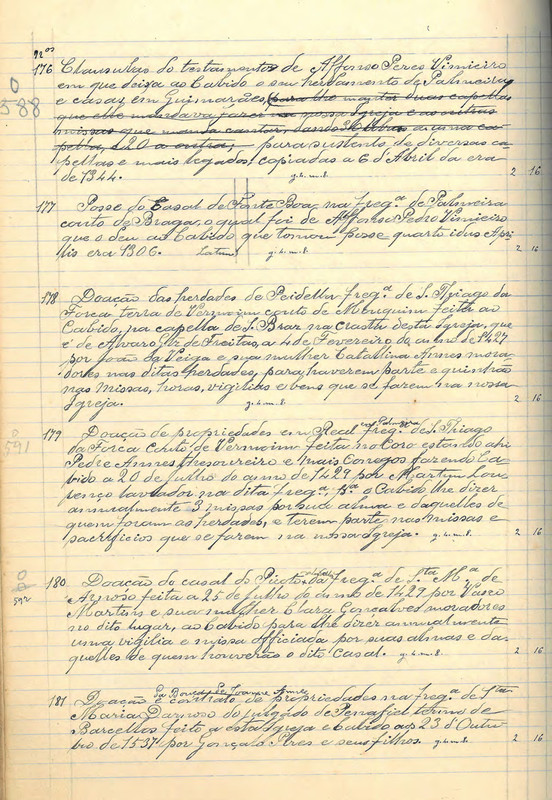 Nos
176 Clausulas do testamento de Affonso Peres Vimieiro
em que deixa ao Cabido o seu herdamento de Palmeira
e casas em Guimarães, para lhe manter duas capellas
que elle mandava fazer na nossa Igreja e as outras
missas que manda cantar, dando
pella, £20 a outra, para sustento de diversas ca-
pellas e mais legados, copiadas a 6 d'Abril da era
de 1344. g. h. m. b. 2 16
588
177 Posse do Casal de Fonte Boa, na freg.ª de Palmeira
couto de Braga, o qual foi de Affonso Pedro Vimieiro
que o deu ao Cabido que tomou posse quarto idus Apri-
lis era 1306. Latim. g. h. m. b. 2 16
178 Doação das herdades de Peidella freg.ª de S. Thiago da
Forca terra de Vermoim couto de feita ao
Cabido, na capella de S. Braz na crasta desta Igreja, que
é de Alvaro Glz de Freitas, a 4 de Fevereiro do anno de 1427
por João da Veiga e sua mulher Catallina Annes mora-
dores nas ditas herdades, para haverem parte e quinhão
nas missas, horas, vigilias e bens que se farem na nossa
Igreja. g. h. m. b. 2 16
179 Doação de propriedades em Real freg.ª de S. Thiago
da Forca couto de Vermoim feita no Coro estando ahi
Pedre Annes thesoureiro e mais Conegos fazendo Ca-
bido a 20 de Julho do anno de 1429 por Martim Lou-
renço lavrador na dita freg.ª p.ª o Cabido lhe dizer
annualmente 3 missas por sua alma e daquelles de
quem foram as herdades, e terem parte nas missas e
sacrificios que se farem na nossa Igreja. g. h. m. b. 2 16
591
180 Doação do casal do da freg.ª de S.ta M.ª de
Aynoso feita a 25 de Julho do anno de 1429 por Vasco
Martins e sua mulher Clara Gonçalves moradores
no dito lugar, ao Cabido para lhe dizer annualmente
uma vigilia e missa officiada por suas almas e da-
quelles de quem houverão o dito casal. g. h. m. b. 2 16
592
181 Doação e contrato de propriedades na freg.ª de S.ta
Maria Darnoso do julgado de Penafiel termo de
Barcellos feito a esta Igreja e Cabido aos 23 d'Outu-
bro de 1537 por Gonçalo Pires e seus filhos. g. h. m. b. 2 16